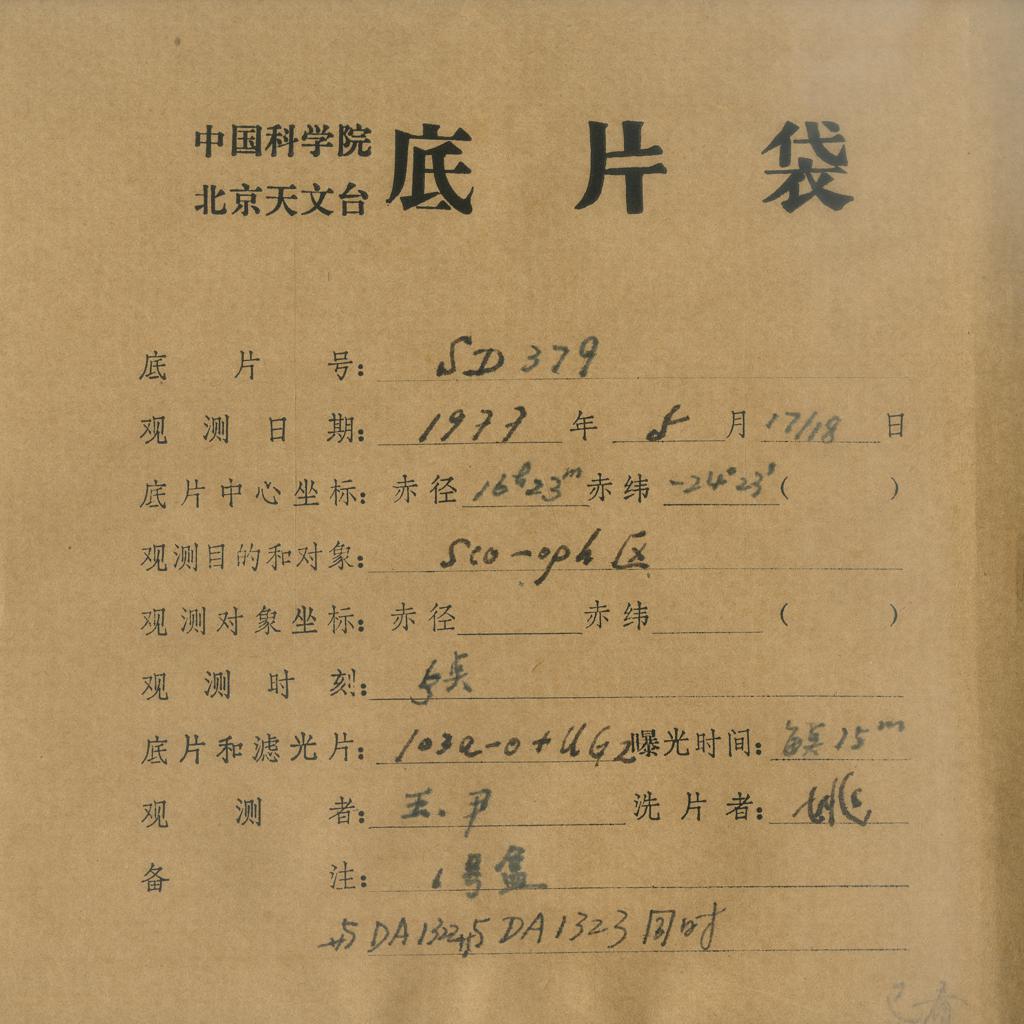 中国科学院
北京天文台
底片袋
底片号: SD 379
观测日期: 1977年 8月 17/18日
底片中心坐标: 赤径 16h23m 赤纬 -24°23′( )
观测目的和对象: Sco-oph 区
观测对象坐标: 赤径 赤纬 ( )
观测时刻:
底片和滤光片: 103a-o+UG2 曝光时间: 15m
观测者: 王.尹 洗片者: 姚
备注: 1号盒
与DA1322与DA1323同时